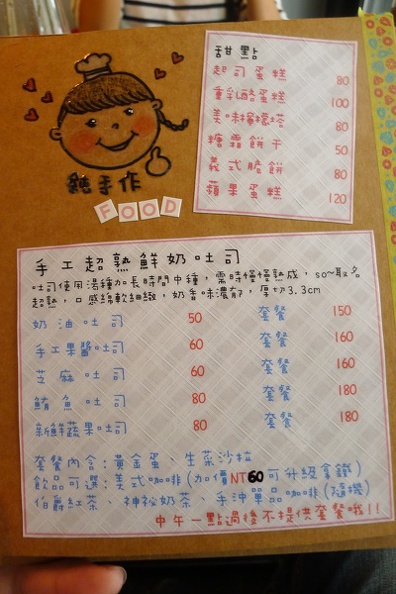 純手作
FOOD
甜點
起司蛋糕 80
重乳酪蛋糕 100
美味檸檬塔 80
糖霜餅干 50
義式脆餅 80
蘋果蛋糕 120
手工超熟鮮奶吐司
吐司使用湯種加長時間中種，需時慢慢熟成，so~取名
超熟，口感綿軟細緻，奶香味濃郁，厚切3.3cm
奶油吐司 50 套餐 150
手工果醬吐司 60 套餐 160
芝麻吐司 60 套餐 160
鮪魚吐司 80 套餐 180
新鮮蔬果吐司 80 套餐 180
套餐內含：黃金蛋、生菜沙拉
飲品可選：美式咖啡(加價NT60可升級拿鐵)
伯爵紅茶、神祕奶茶、手沖單品咖啡(隨機)
中午一點過後不提供套餐哦!!